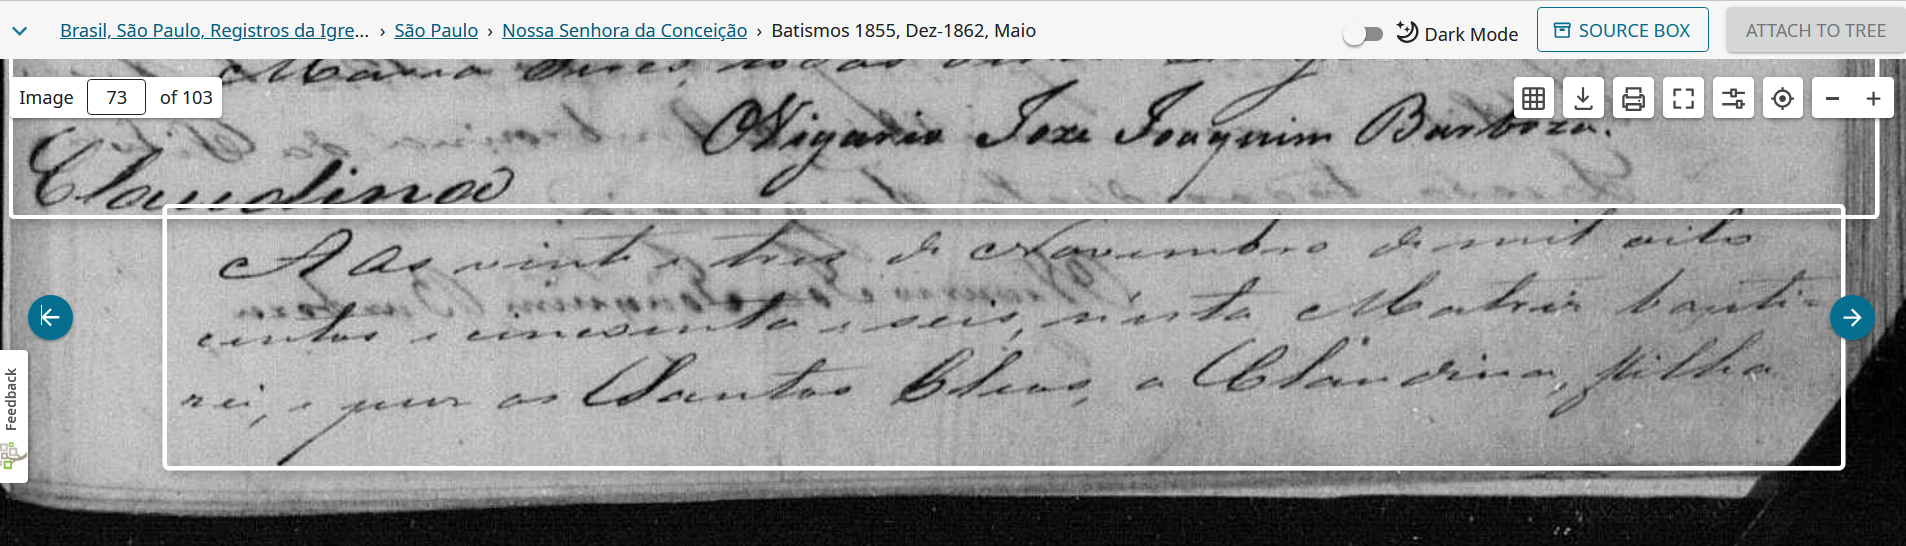 Brasil, São Paulo, Registros da Igre... › São Paulo › Nossa Senhora da Conceição › Batismos 1855, Dez-1862, Maio
Dark Mode
SOURCE BOX
ATTACH TO TREE
Image 73 of 103
Maria
Vigario Joze Joaquim Barboza.
Claudina
Aos vinte e tres de Novembro de mil oito
centos e cincoenta e seis, nesta Matriz bauti-
zei, e puz os Santos Oleos, a Claudina, filha
Feedback